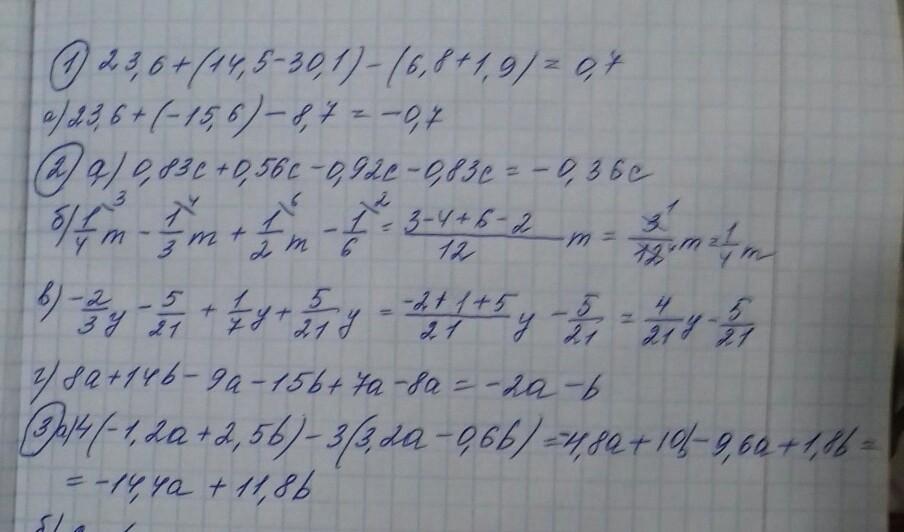 1) 23,6+(14,5-30,1)-(6,8+1,9)=0,7
а) 23,6+(-15,6)-8,7=-0,7
2) а) 0,83c+0,56c-0,92c-0,83c=-0,36c
б) 1/4 m \3 - 1/3 m \4 + 1/2 m \6 - 1/6 \2 = (3-4+6-2)/12 m = 3/12 m 1 4 = 1/4 m
в) -2/3 y - 5/21 + 1/7 y + 5/21 y = (-2+1+5)/21 y - 5/21 = 4/21 y - 5/21
г) 8a+14b-9a-15b+7a-8a=-2a-b
3) а) 4(-1,2a+2,5b)-3(3,2a-0,6b)=-4,8a+10b-9,6a+1,8b=
=-14,4a+11,8b